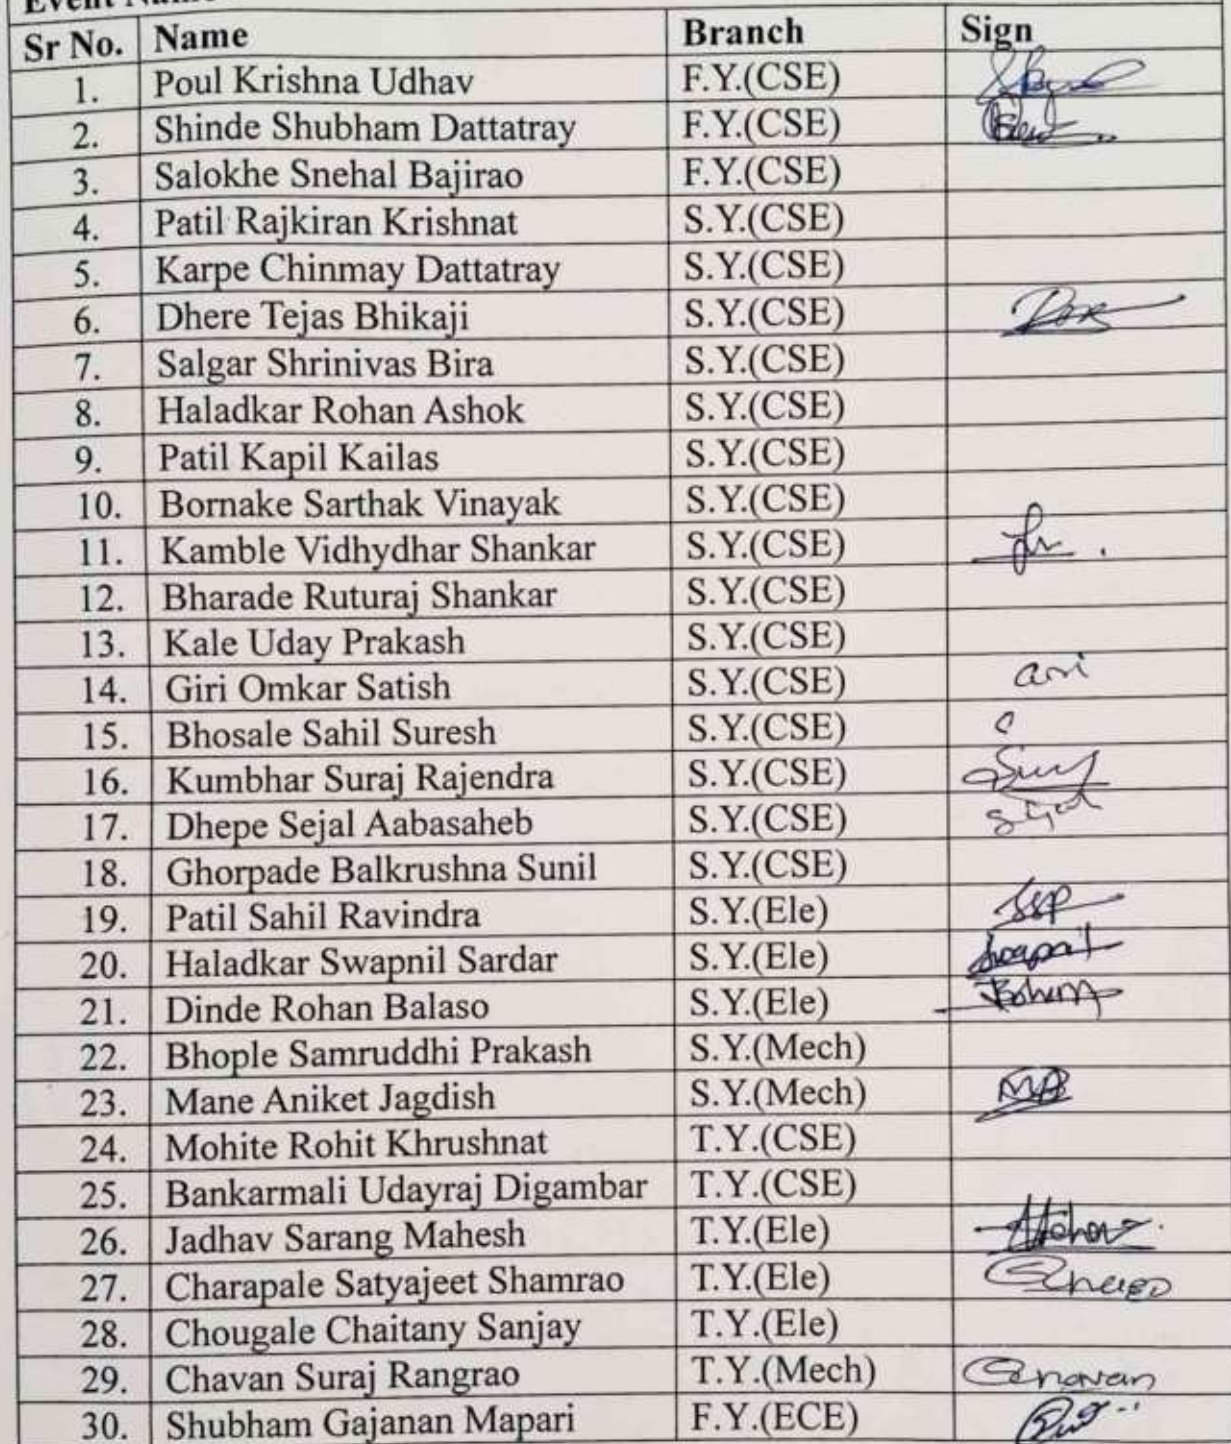 Event Name
Sr No. Name Branch Sign
1. Poul Krishna Udhav F.Y.(CSE)
2. Shinde Shubham Dattatray F.Y.(CSE)
3. Salokhe Snehal Bajirao F.Y.(CSE)
4. Patil Rajkiran Krishnat S.Y.(CSE)
5. Karpe Chinmay Dattatray S.Y.(CSE)
6. Dhere Tejas Bhikaji S.Y.(CSE)
7. Salgar Shrinivas Bira S.Y.(CSE)
8. Haladkar Rohan Ashok S.Y.(CSE)
9. Patil Kapil Kailas S.Y.(CSE)
10. Bornake Sarthak Vinayak S.Y.(CSE)
11. Kamble Vidhydhar Shankar S.Y.(CSE)
12. Bharade Ruturaj Shankar S.Y.(CSE)
13. Kale Uday Prakash S.Y.(CSE)
14. Giri Omkar Satish S.Y.(CSE)
15. Bhosale Sahil Suresh S.Y.(CSE)
16. Kumbhar Suraj Rajendra S.Y.(CSE)
17. Dhepe Sejal Aabasaheb S.Y.(CSE)
18. Ghorpade Balkrushna Sunil S.Y.(CSE)
19. Patil Sahil Ravindra S.Y.(Ele)
20. Haladkar Swapnil Sardar S.Y.(Ele)
21. Dinde Rohan Balaso S.Y.(Ele)
22. Bhople Samruddhi Prakash S.Y.(Mech)
23. Mane Aniket Jagdish S.Y.(Mech)
24. Mohite Rohit Khrushnat T.Y.(CSE)
25. Bankarmali Udayraj Digambar T.Y.(CSE)
26. Jadhav Sarang Mahesh T.Y.(Ele)
27. Charapale Satyajeet Shamrao T.Y.(Ele)
28. Chougale Chaitany Sanjay T.Y.(Ele)
29. Chavan Suraj Rangrao T.Y.(Mech)
30. Shubham Gajanan Mapari F.Y.(ECE)